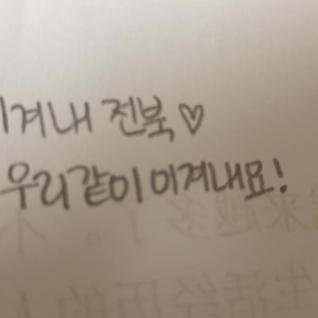 이겨내 전북♡
우리같이 이겨내요!